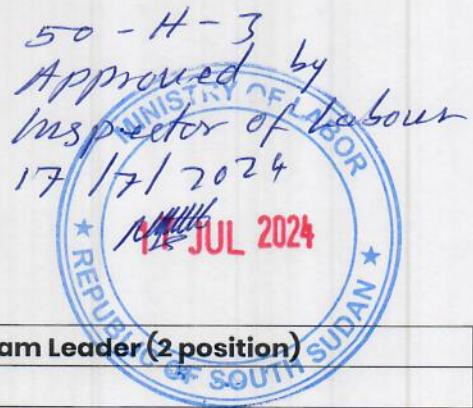 50-H-3
Approved by
Inspector of Labour
17/7/2024
MINISTRY OF LABOR
JUL 2024
REPUBLIC OF SOUTH SUDAN
am Leader (2 position)